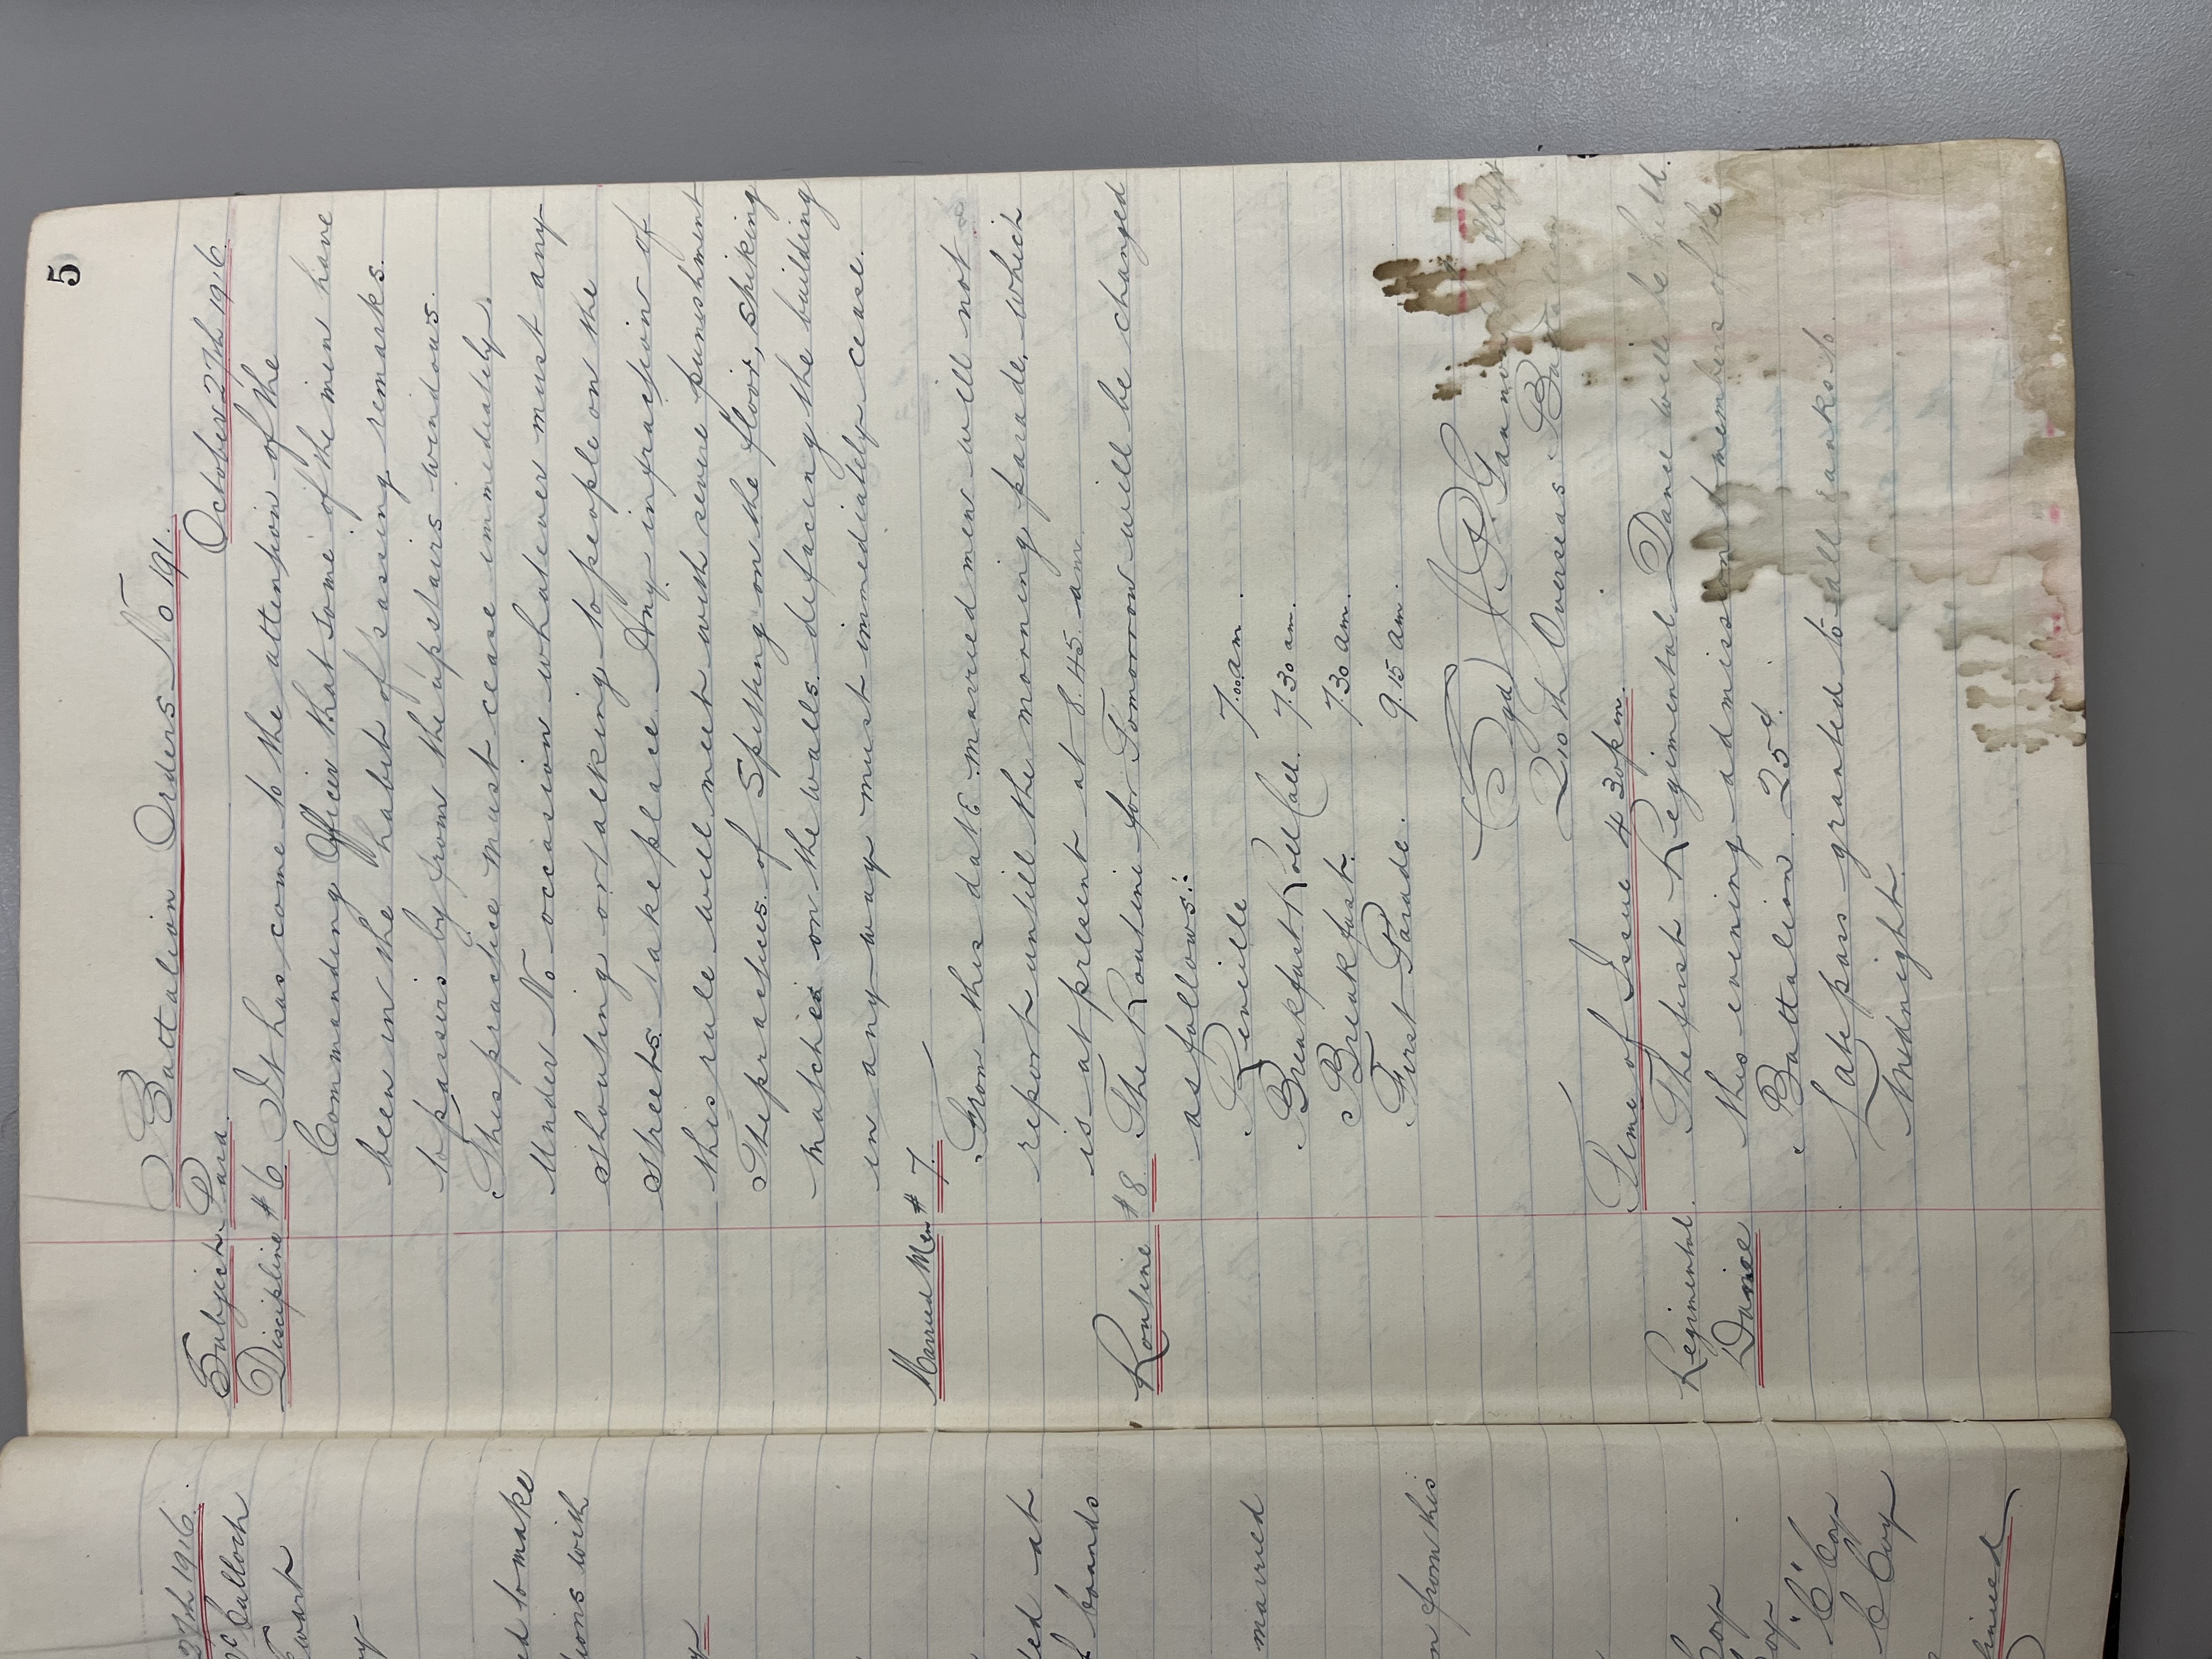 5
Battalion Orders No 191.
Subject Para October 27th 1916.
Discipline #6 It has come to the attention of the
Commanding Officer that some of the men have
been in the habit of sassing remarks.
to passers by from the upstairs windows.
This practice must cease immediately.
Under No occasion whatever must any
shouting or talking to people on the
streets. take place. Any infraction of
this rule will meet with severe punishment
The practices. of Spitting on the floor, striking
matches on the walls. defacing the building
in any way must immediately cease.
Married Men #7.
From this date. married men will not
report untill the morning parade, which
is at present at 8.45 am.
Routine #8. The Routine for Tomorrow will be changed
as follows:
Reveille 7.00 am.
Breakfast Roll Call. 7.30 am.
Breakfast. 7.30 am.
First Parade. 9.15 am.
(Sgd)
210th Overseas
Time of Issue 4 30 pm.
Regimental The first Regimental Dance will be held.
Dance this evening admission to members of the
Battalion 25¢.
Late pass granted to all ranks to
Midnight.
27th 1916.
McCulloch
ed to make
tions with
ded at
boards
married
from this
Coy
"C" Coy
C Coy